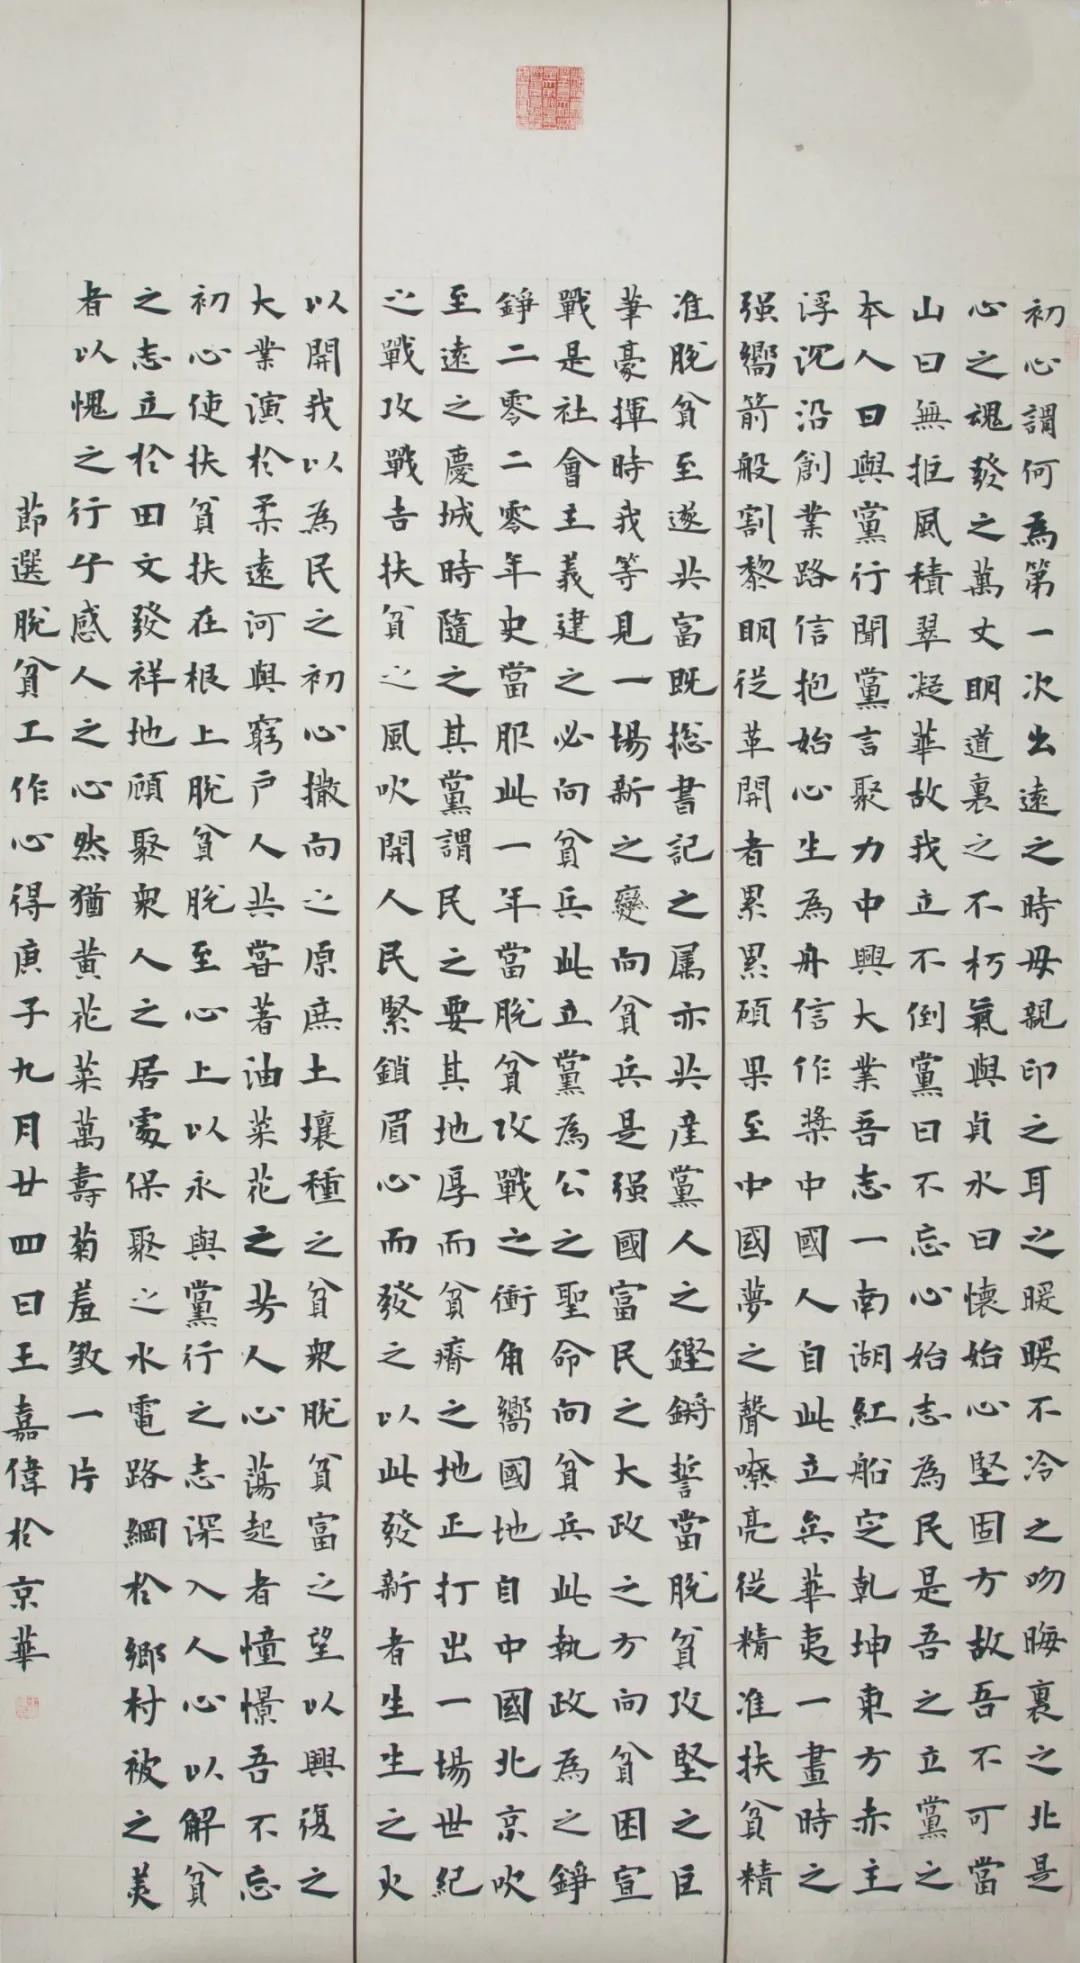 初心謂何為第一次出遠之時母親印之耳之暖暖不冷之吻晦裏之北是
心之魂發之萬丈明道裏之不朽氣與貞水曰懷始心堅固方故吾不可當
山曰無拒風積翠凝華故我立不倒黨曰不忘心始志為民是吾之立黨之
本人曰與黨行聞黨言聚力中興大業吾志一南湖紅船定乾坤東方赤主
浮沉沿創業路信抱始心生為舟信作槳中國人自此立矣華夷一畫時之
强嚮箭般割黎明從革開者累累碩果至中國夢之聲嘹亮從精准扶貧精
准脫貧至遂共富既総書記之属亦共産黨人之鏗鏘誓當脫貧攻堅之巨
筆豪揮時我等見一場新之變向貧兵是强國富民之大政之方向貧困宣
戰是社會主義建之必向貧兵此立黨為公之聖命向貧兵此執政為之錚
錚二零二零年史當服此一年當脫貧攻戰之衝角嚮國地自中國北京吹
至遠之慶城時隨之其黨謂民之要其地厚而貧瘠之地正打出一場世紀
之戰攻戰吉扶貧之風吹開人民緊鎖眉心而發之以此發新者生生之火
以開我以為民之初心撒向之原庶土壤種之貧衆脫貧富之望以興復之
大業演於柔遠河與窮户人共嘗著油菜花之芳人心蕩起者憧憬吾不忘
初心使扶貧扶在根上脫貧脫至心上以永與黨行之志深入人心以解貧
之志立於田文發祥地頋聚衆人之居處保聚之水電路網於鄉村被之美
者以愧之行乎感人之心然猶黄花菜萬壽菊羞敦一片
節選脫貧工作心得庚子九月廿四日王嘉偉於京華